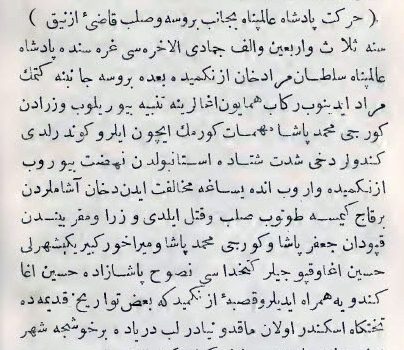 ( حركت پادشاه عالمپناه بجانب بروسه وصلب قاضئ ازنيق )
سنه ثلاث واربعين والف جمادى الاخره سى غره سنده پادشاه
عالمپناه سلطان مراد خان ازنكميده بعده بروسه جانبنه كتمك
مراد ايدينوب ركاب همايون اغالرينه تنبيه بيوريلوب وزرادن
كورجى محمد پاشا مهمات كورمك ايچون ايلرو كوندرلدى
كندولر دخى شدت شتاده استانبولدن نهضت بيوروب
ازنكميده واروب انده يساغه مخالفت ايدن دخان آشاملردن
برقاچ كيمسه طوتوب صلب وقتل ايلدى و زرا ومقربيندن
قپودان جعفر پاشا وكورجى محمد پاشا وميراخور كبير يكيشهرلى
حسين اغا وقپوجيلر كتخداسى نصوح پاشازاده حسين اغا
كندويه همراه ايديلر وقصبۀ ازنكميد كه بعض تواريخ قديمه ده
تختكاه اسكندر اولان ماقدونيادر لب درياده برخوشجه شهر